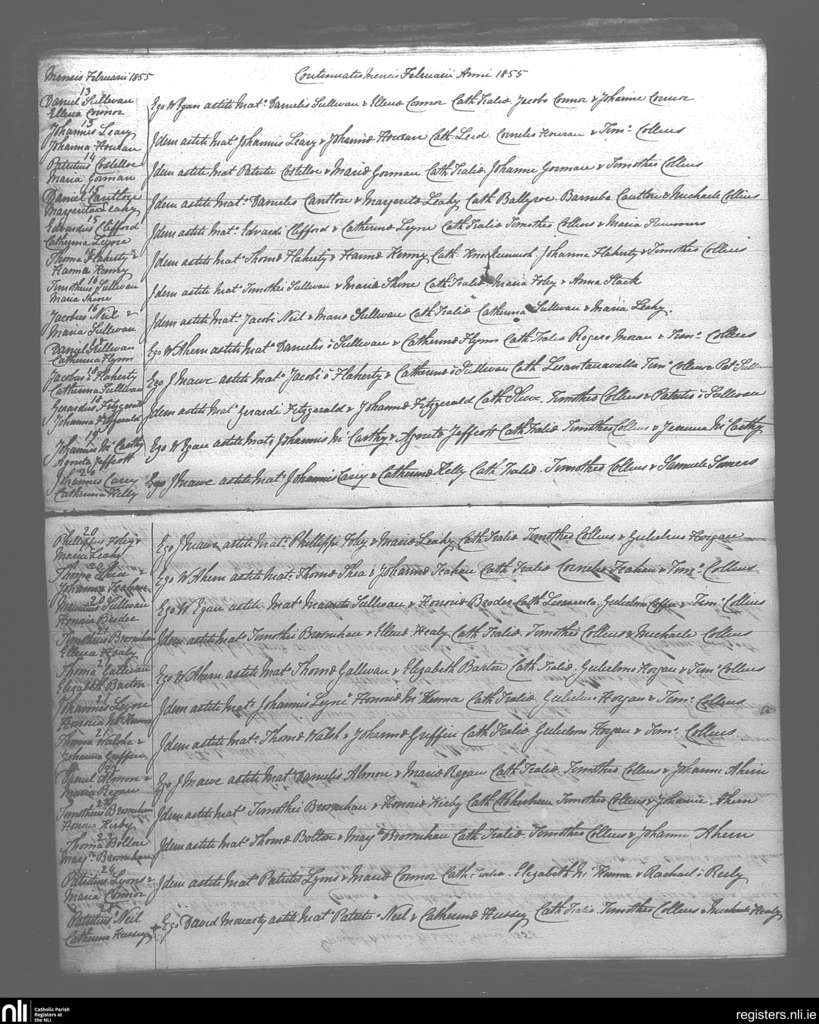 Mensis Februarii 1855 Continuatio mensis Februarii Anni 1855
13
Daniel Sullivan
Ellena Connor
Ego W Egan astiti Mat.o Danielis Sullivan & Ellenæ Connor Cath. Tralia Jacobo Connor & Johanne Connor
13
Johannes Leary
Johanna Houran
Idem astiti Mat. Johannis Leary & Johannæ Houran Cath. Cornelio Houran & Tim.o Collins
14
Patritius Costelloe
Maria Gorman
Idem astiti Mat Patritii Costelloe & Mariæ Gorman Cath. Tralia Johanne Gorman & Timotheo Collins
15
Daniel Cantlon
Margarita Leahy
Idem astiti Mat.o Danielis Cantlon & Margaritæ Leahy Cath. Ballyroe Barnaba Cantlon & Michaele Collins
15
Edvardus Clifford
Catherina Leyne
Idem astiti Mat.o Edvardi Clifford & Catherinæ Leyne Cath Tralia Timotheo Collins & Maria
Thoma Flaherty &
Hanna Henry
Idem astiti Mat. Thomæ Flaherty & Hannæ Henry Cath. Johanne Flaherty & Timotheo Collins
16
Timotheus Sullivan
Maria Shine
Idem astiti Mat Timothei Sullivan & Mariæ Shine Cath Tralia Maria Foley & Anna Slack
16
Jacobus Neil &
Maria Sullivan
Idem astiti Mat. Jacobi Neil & Mariæ Sullivan Cath Tralia Catherina Sullivan & Maria Leahy.
18
Daniel Sullivan
Catherina Flynn
Ego W Ahern astiti Mat.o Danielis o Sullivan & Catherinæ Flynn Cath. Tralia Rogero Moran & Tim.o Collins
18
Jacobus Flaherty
Catherina Sullivan
Ego J Mawe astiti Mat.o Jacobi o Flaherty & Catherinæ o Sullivan Cath. Tim.o Collins & Pat Sull
18
Gerardus Fitzgerald
Johanna Fitzgerald
Idem astiti Mat.o Gerardi Fitzgerald & Johannæ Fitzgerald Cath Timotheo Collins & Patritio o Sullivan
19
Johannes Mc Carthy
Agneta Jeffcott
Ego W Egan astiti Mat.o Johannis Mc Carthy & Agnetæ Jeffcott Cath Tralia Timotheo Collins & Mc Carthy
20
Johannes Carey
Catherina Kelly
Ego J Mawe astiti Mat.o Johannis Carey & Catherinæ Kelly Cath. Tralia. Timotheo Collins & Samuele Somers
20
Phillippus Foley &
Maria Leahy
Ego J Mawe astiti Mat.o Phillippi Foley & Mariæ Leahy Cath Tralia Timotheo Collins & Gulielmo Horgan
20
Thoma Shea &
Johanna Keahan
Ego W Ahern astiti Mat.o Thomæ Shea & Johannæ Keahan Cath Tralia Cornelio Keahan & Tim.o Collins
20
Sullivan
Honoria
Ego W Egan astiti Mat Sullivan & Honoriæ Cath Gulielmo & Tim.o Collins
Timotheus Brosnahan
Ellena Healy
Idem astiti Mat. Timothei Brosnahan & Ellenæ Healy Cath Tralia Timotheo Collins & Michaele Collins
21
Thoma Gallivan
Elizabeth Barton
Ego W Ahern astiti Mat.o Thomæ Gallivan & Elizabeth Barton Cath Tralia Gulielmo Horgan & Tim.o Collins
21
Johannes Leyne
Honoria McKenna
Idem astiti Mat.o Johannis Leyne Honoriæ McKenna Cath Tralia Gulielmo Horgan & Tim.o Collins
21
Thoma Walsh &
Johanna Griffin
Idem astiti Mat.o Thomæ Walsh & Johannæ Griffin Cath Tralia Gulielmo Horgan & Tim.o Collins
Daniel Almon &
Maria Regan
Ego J Mawe astiti Mat.o Danielis Almon & Mariæ Regan Cath Tralia. Timotheo Collins & Johanni Ahern
22
Timotheus Brosnahan
Honora Kirby
Idem astiti Mat.o Timothei Brosnahan & Honoriæ Kirby Cath Timotheo Collins & Johanne Ahern
22
Thoma Bolton
Mary Brosnahan
Idem astiti Mat.o Thomæ Bolton & Mary Brosnahan Cath Tralia Timotheo Collins & Johanni Ahern
24
Patritius Lyons &
Maria Connor
Idem astiti Mat.o Patritii Lyons & Mariæ Connor Cath Tralia. Elizabeth Mc Kenna & Rachael o Reily
Patritius Neil
Catherina Hussey
Ego David Moriarty astiti Mat. Patritii Neil & Catherinæ Hussey Cath Tralia Timotheo Collins & Michaele Healy
nli
Catholic Parish
Registers at
the NLI
registers.nli.ie